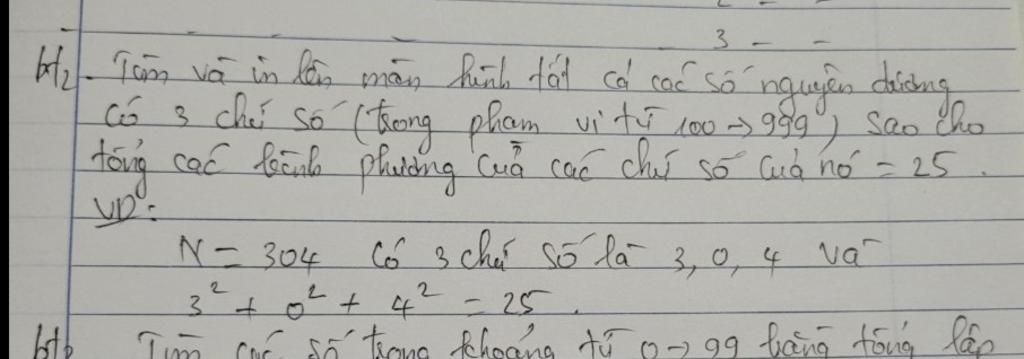 3 - -
bt2. Tìm và in lên màn hình tất cả các số nguyên dương
có 3 chữ số (trong phạm vi từ 100 → 999) sao cho
tổng các bình phương của các chữ số của nó = 25.
VD:
N = 304 có 3 chữ số là 3, 0, 4 và
3² + 0² + 4² = 25.
Tìm các số trong khoảng từ 0 → 99 bằng tổng lập